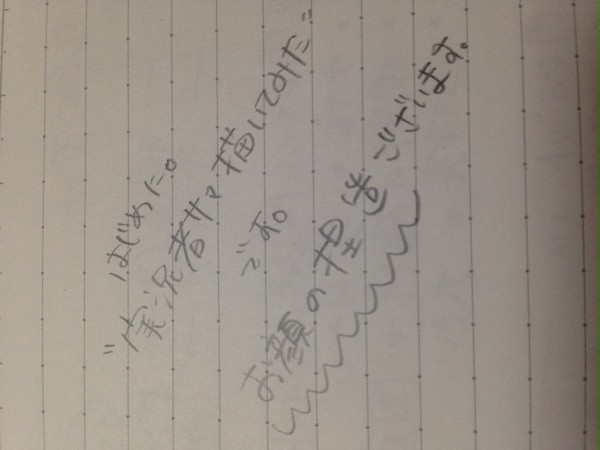 はじめに。
"実況者サマ描いてみた"
です。
お顔の捏造ございます。